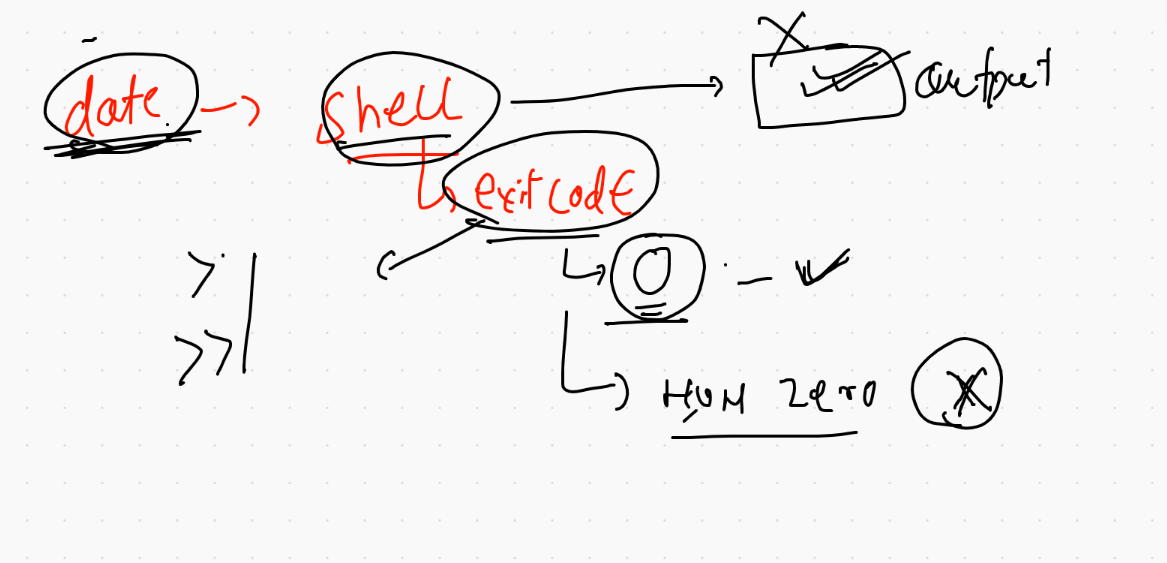 date → shell → output
exit code
> |
>> |
0 - ✓
Non Zero X